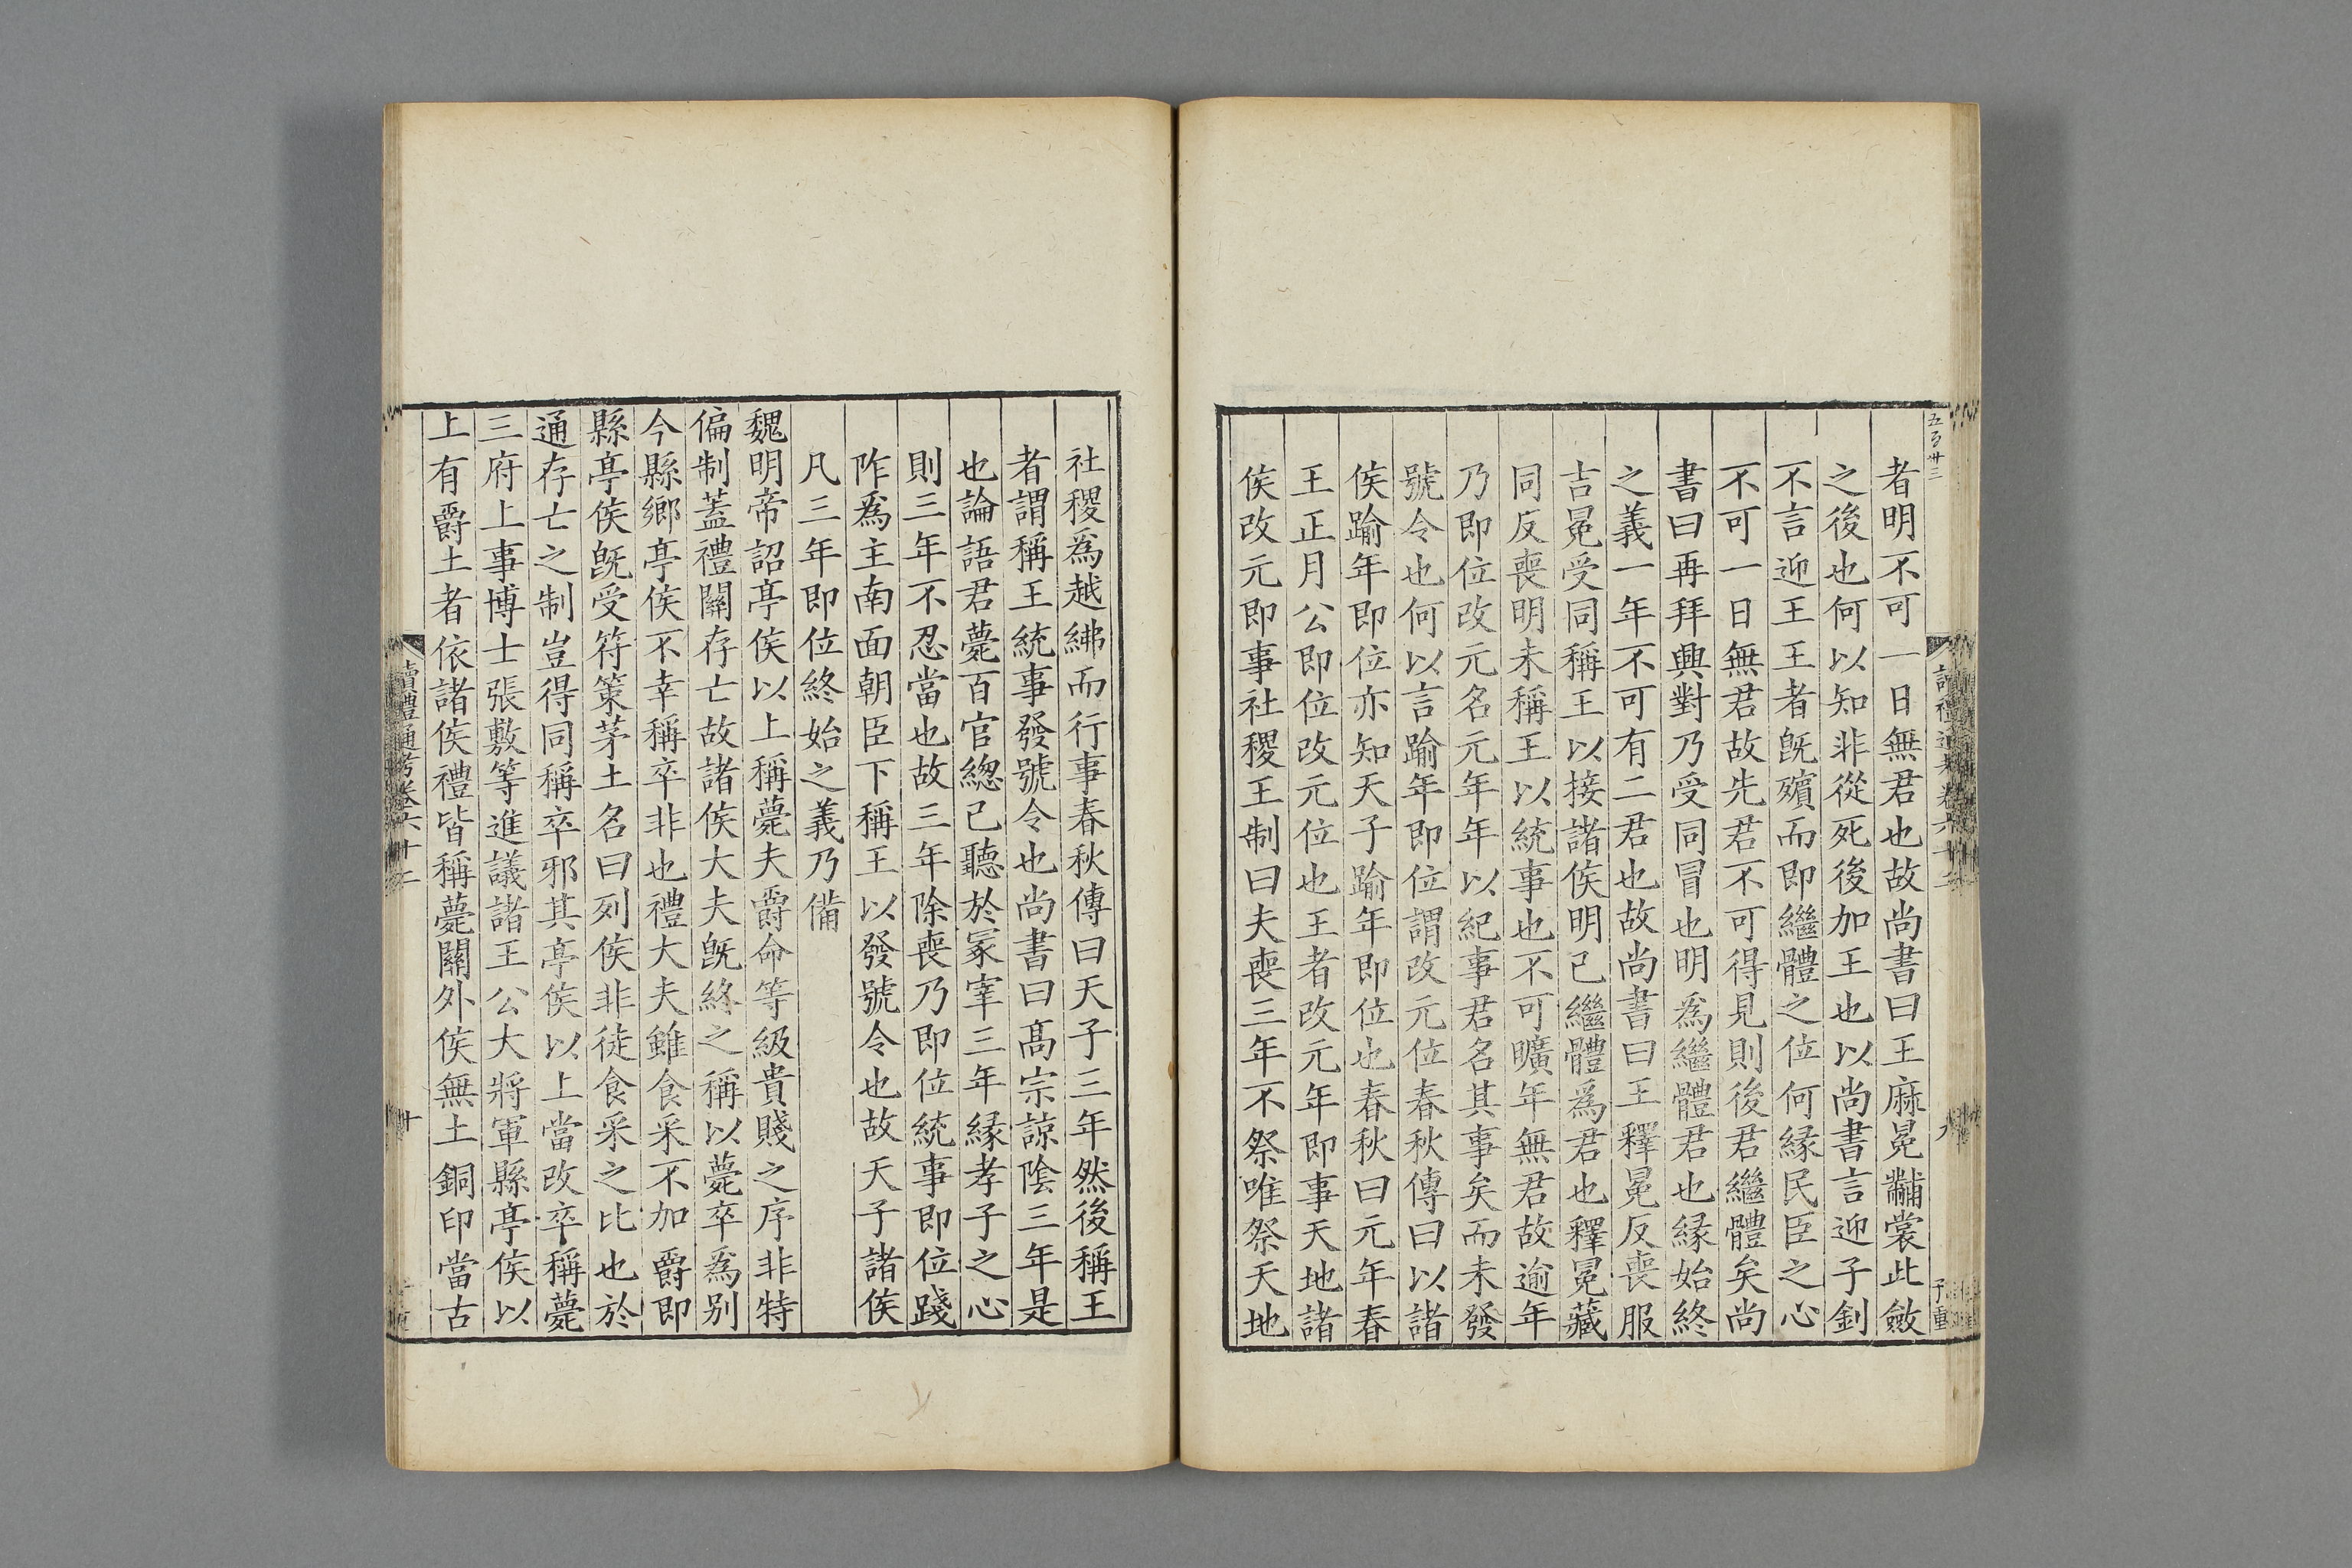 者明不可一日無君也故尚書曰王麻冕黼裳此斂
之後也何以知非從死後加王也以尚書言迎子釗
不言迎王王者旣殯而即繼體之位何緣民臣之心
不可一日無君故先君不可得見則後君繼體矣尚
書曰再拜興對乃受同冒也明爲繼體君也緣始終
之義一年不可有二君也故尚書曰王釋冕反喪服
吉冕受同稱王以接諸侯明已繼體爲君也釋冕藏
同反喪明未稱王以統事也不可曠年無君故逾年
乃即位改元名元年年以紀事君名其事矣而未發
號令也何以言踰年即位謂改元位春秋傳曰以諸
侯踰年即位亦知天子踰年即位也春秋曰元年春
王正月公即位改元位也王者改元年即事天地諸
侯改元即事社稷王制曰夫喪三年不祭唯祭天地
社稷爲越紼而行事春秋傳曰天子三年然後稱王
者謂稱王統事發號令也尚書曰高宗諒陰三年是
也論語君薨百官總己聽於冢宰三年緣孝子之心
則三年不忍當也故三年除喪乃即位統事即位踐
阼爲主南面朝臣下稱王以發號令也故天子諸侯
凡三年即位終始之義乃備
魏明帝詔亭侯以上稱薨夫爵命等級貴賤之序非特
偏制蓋禮關存亡故諸侯大夫旣終之稱以薨卒爲别
今縣鄉亭侯不幸稱卒非也禮大夫雖食采不加爵即
縣亭侯旣受符策茅土名曰列侯非徒食采之比也於
通存亡之制豈得同稱卒邪其亭侯以上當改卒稱薨
三府上事博士張敷等進議諸王公大將軍縣亭侯以
上有爵土者依諸侯禮皆稱薨關外侯無土銅印當古
讀禮通考卷六十二
十
讀禮通考卷六十二
九
子重
五百卅三